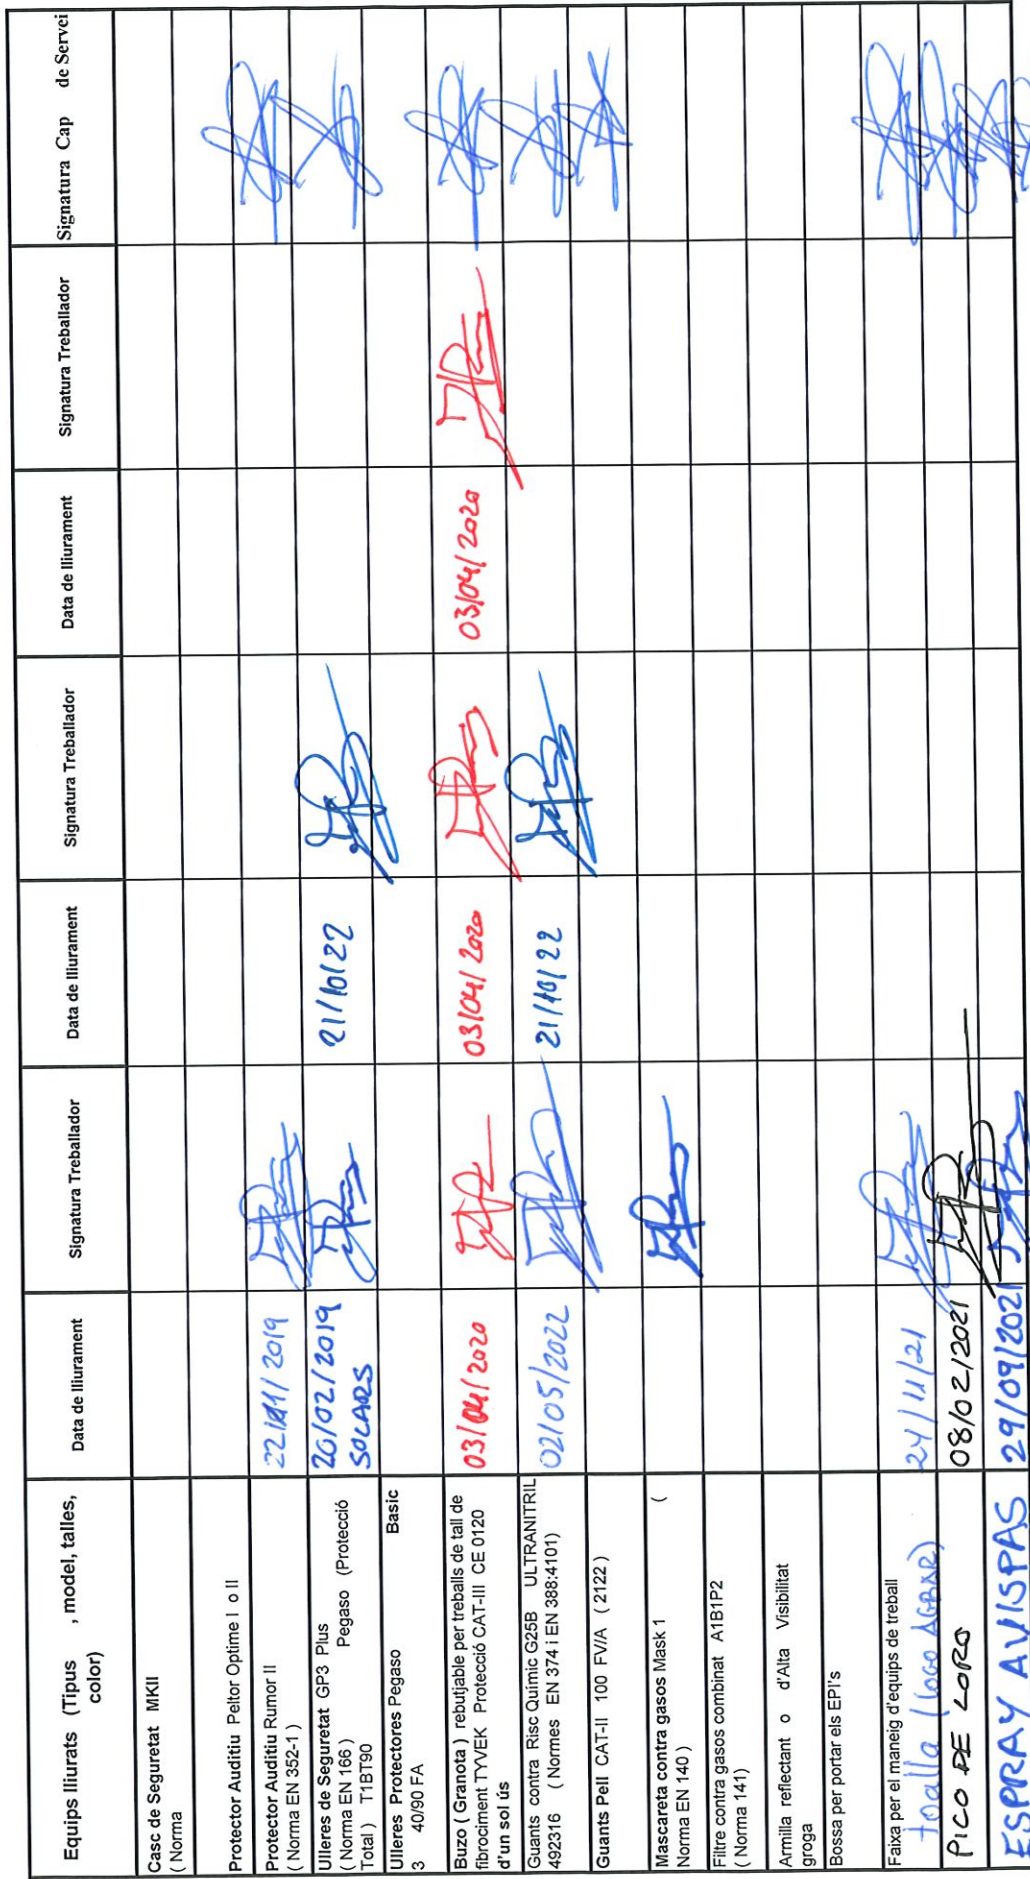 Equips lliurats (Tipus , model, talles,
color)
Data de lliurament
Signatura Treballador
Data de lliurament
Signatura Treballador
Data de lliurament
Signatura Treballador
Signatura Cap de Servei
Casc de Seguretat MKII
( Norma
Protector Auditiu Peltor Optime I o II
Protector Auditiu Rumor II
( Norma EN 352-1 )
22/11/2019
Ulleres de Seguretat GP3 Plus
( Norma EN 166 ) Pegaso (Protecció
Total ) T1BT90
20/02/2019
SOLARS
21/10/22
Ulleres Protectores Pegaso Basic
3 40/90 FA
Buzo ( Granota ) rebutjable per treballs de tall de
fibrociment TYVEK Protecció CAT-III CE 0120
d'un sol ús
03/04/2020
03/04/2020
03/04/2020
Guants contra Risc Quimic G25B ULTRANITRIL
492316 ( Normes EN 374 i EN 388:4101)
02/05/2022
21/10/22
Guants Pell CAT-II 100 FV/A ( 2122 )
Mascareta contra gasos Mask 1 (
Norma EN 140 )
Filtre contra gasos combinat A1B1P2
( Norma 141)
Armilla reflectant o d'Alta Visibilitat
groga
Bossa per portar els EPI's
Faixa per el maneig d'equips de treball
toalla (logo AGBAR)
24/11/21
PICO DE LORO
08/02/2021
ESPRAY AVISPAS
29/09/2021